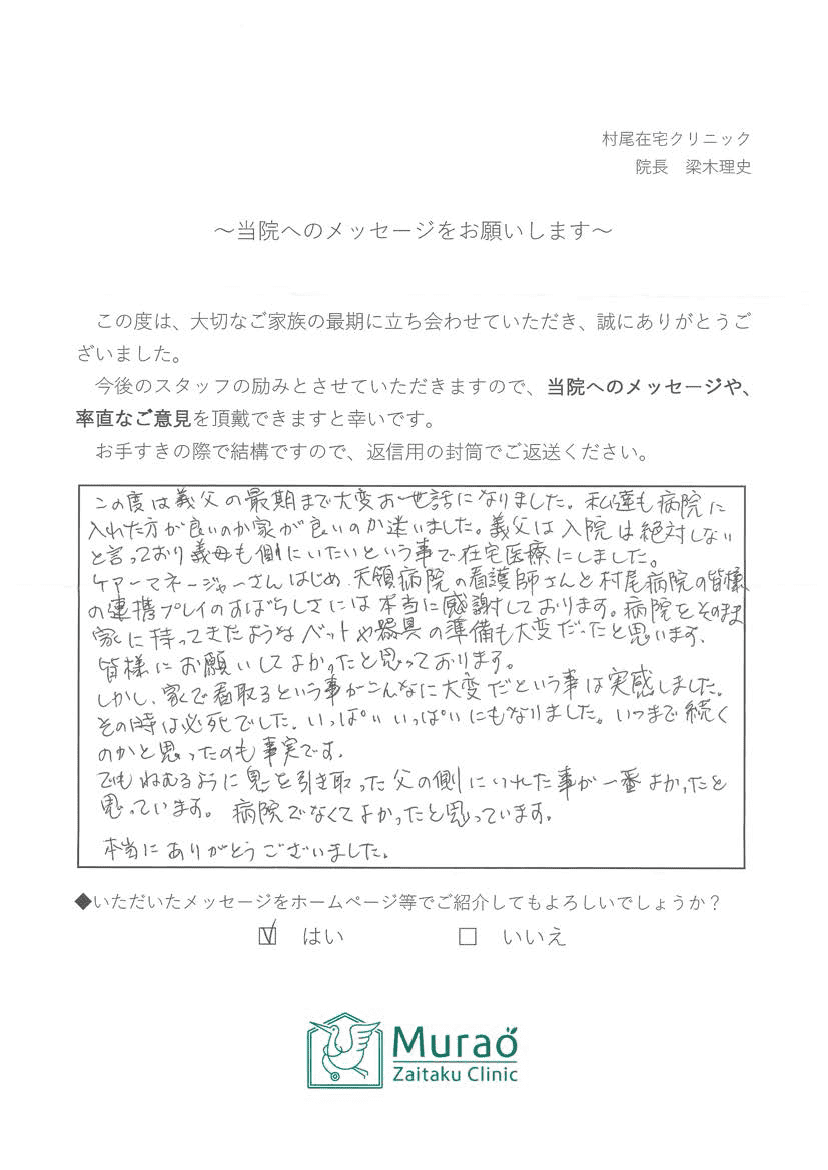 村尾在宅クリニック
院長　梁木理史
～当院へのメッセージをお願いします～
この度は、大切なご家族の最期に立ち会わせていただき、誠にありがとうご
ざいました。
今後のスタッフの励みとさせていただきますので、当院へのメッセージや、
率直なご意見を頂戴できますと幸いです。
お手すきの際で結構ですので、返信用の封筒でご返送ください。
この度は義父の最期まで大変お世話になりました。私達も病院に
入れた方が良いのか家が良いのか迷いました。義父は入院は絶対しない
と言っており義母も側にいたいという事で在宅医療にしました。
ケアーマネージャーさんはじめ、天領病院の看護師さんと村尾病院の皆様
の連携プレイのすばらしさには本当に感謝しております。病院をそのまま
家に持ってきたようなベットや器具の準備も大変だったと思います、
皆様にお願いしてよかったと思っております。
しかし、家で看取るという事がこんなに大変だという事は実感しました。
その時は必死でした、いっぱいいっぱいにもなりました。いつまで続く
のかと思ったのも事実です、
でもねむるように息を引き取った父の側にいれた事が一番よかったと
思っています。病院でなくてよかったと思っています。
本当にありがとうございました。
◆いただいたメッセージをホームページ等でご紹介してもよろしいでしょうか？
☑　はい　　　□　いいえ
Murao
Zaitaku Clinic